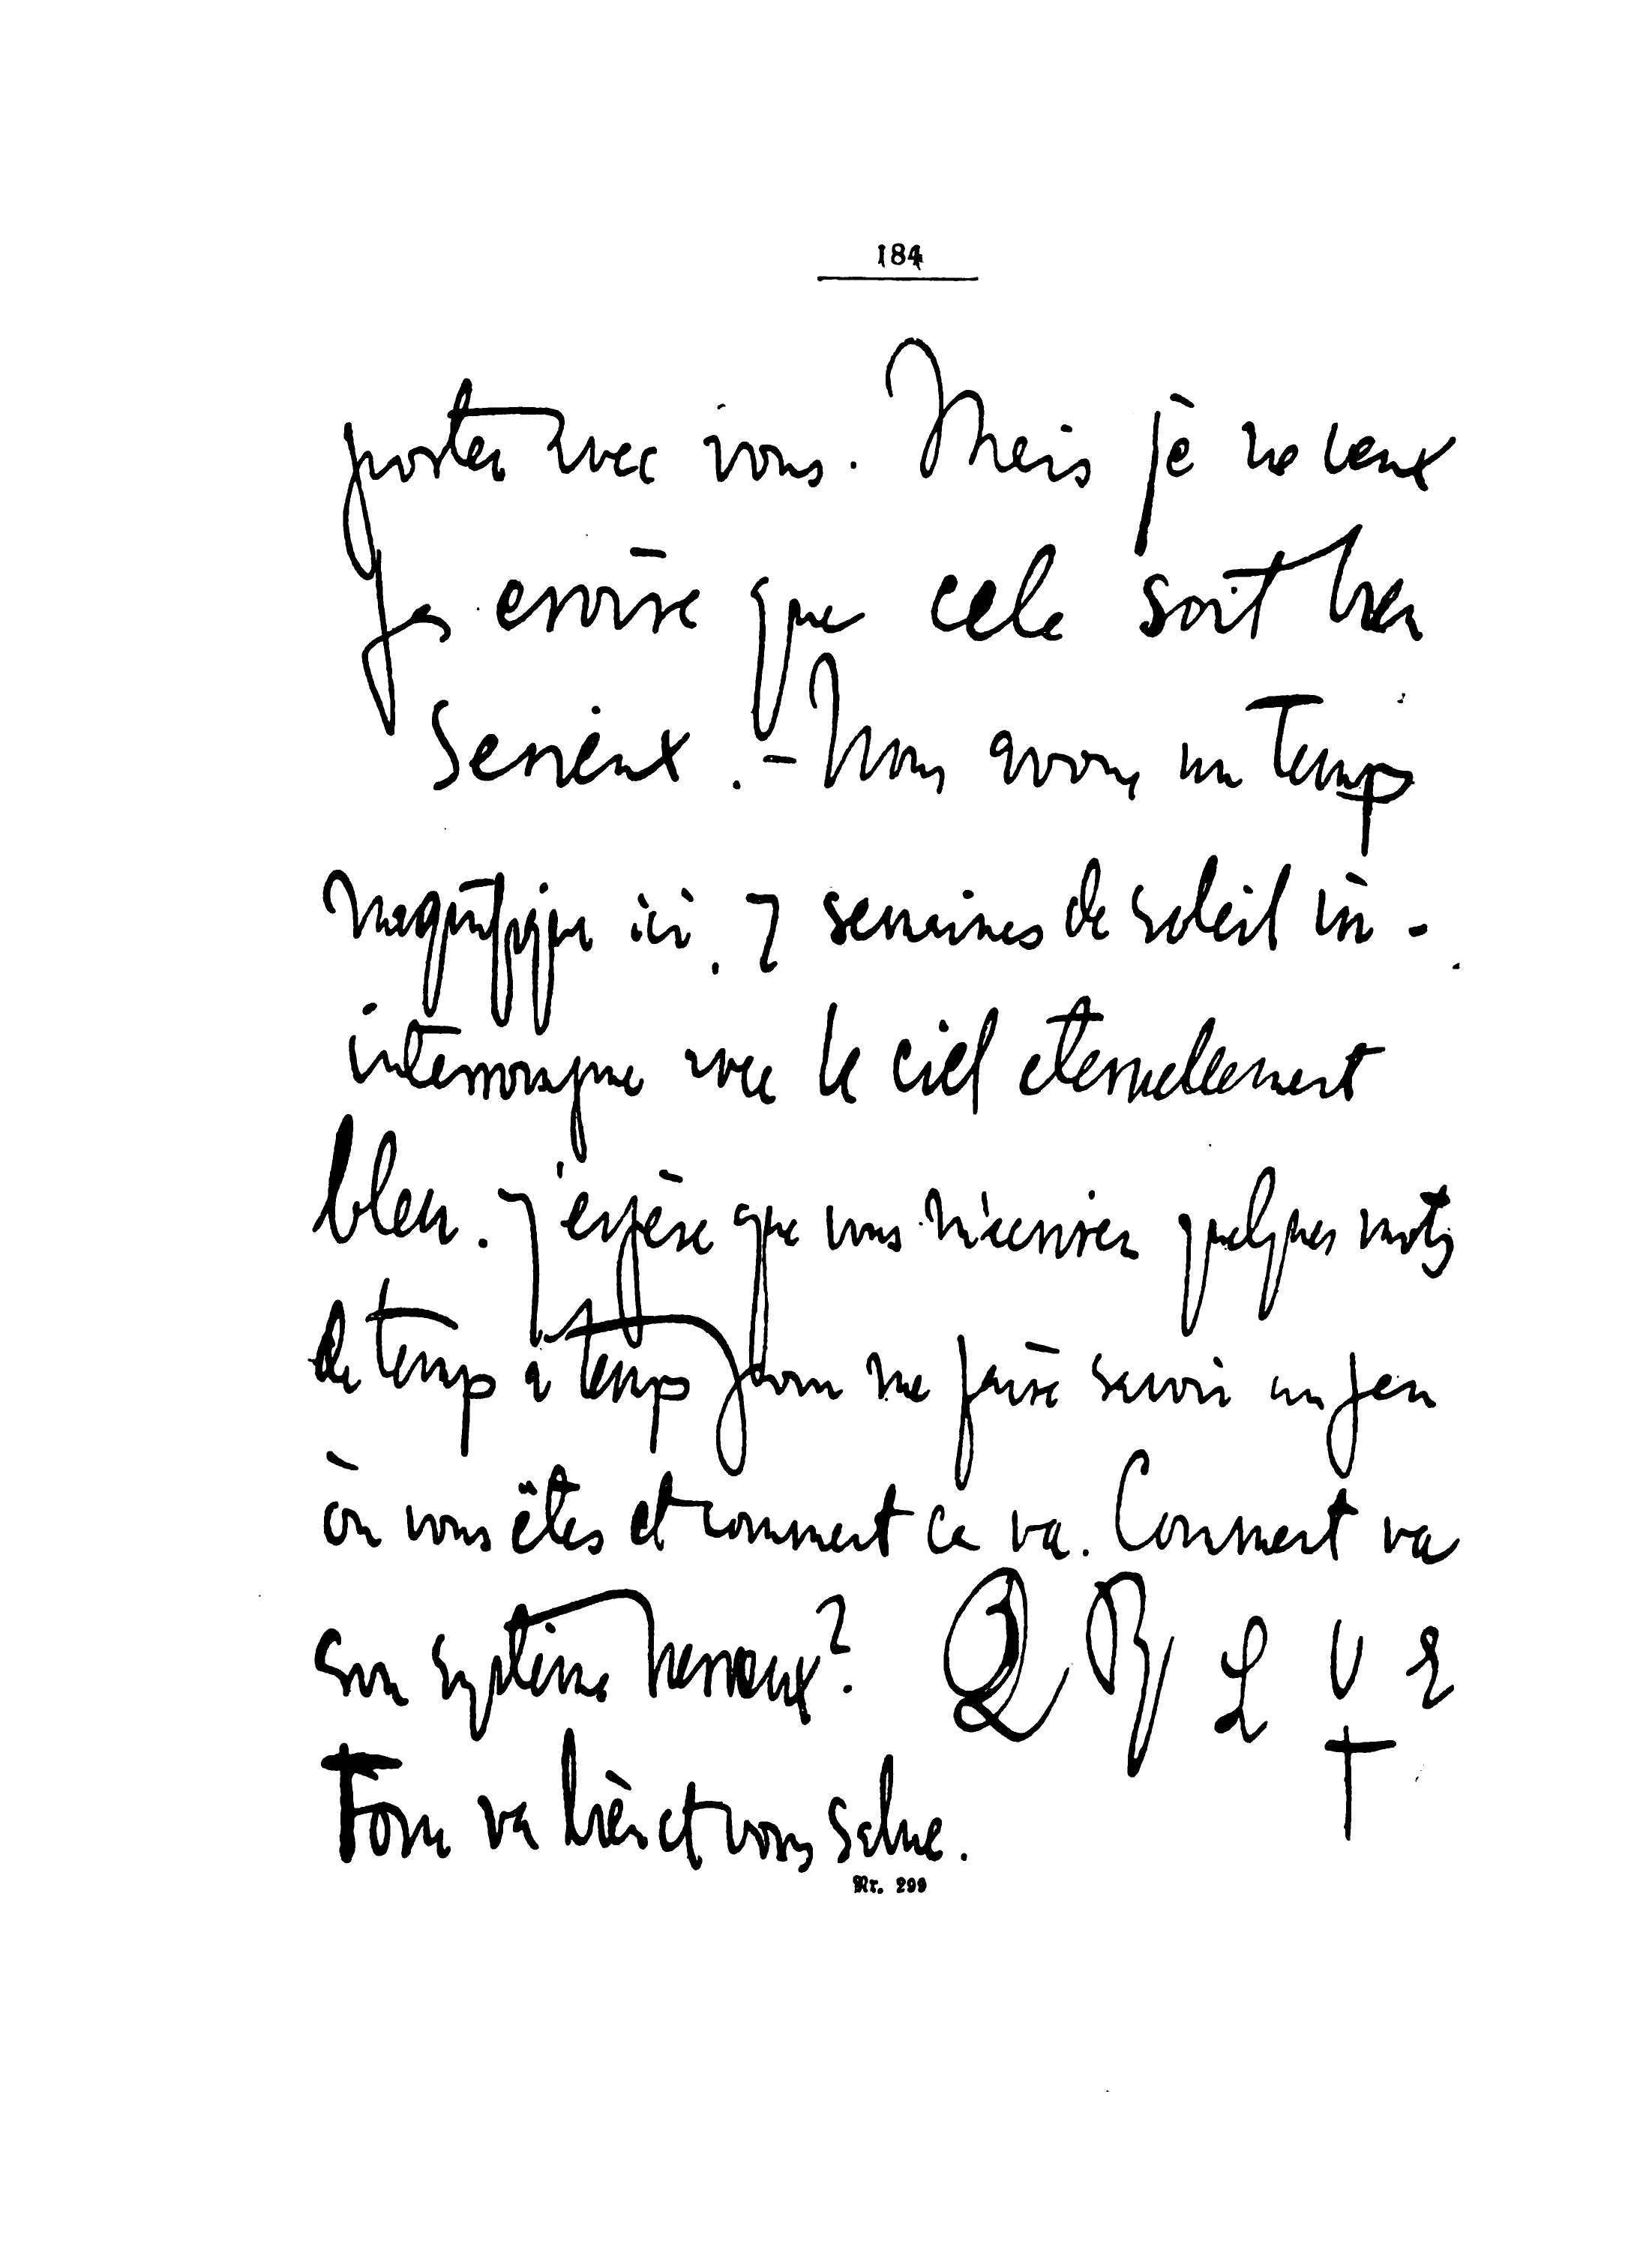 184
porter avec vous. Mais je ne veux
pas croire que cela soit bien
serieux. - Nous avons un temps
magnifique ici, 7 semaines de soleil in-
interrompue avec le ciel eternellement
bleu. J'espère que vous m'ecrivez quelques mots
de temps a temps pour me faire savoir un peu
où vous êtes et comment ca va. Comment va
son système nerveux? Q B L U E
T
Tom va bièn et vous salue.
Nr. 299